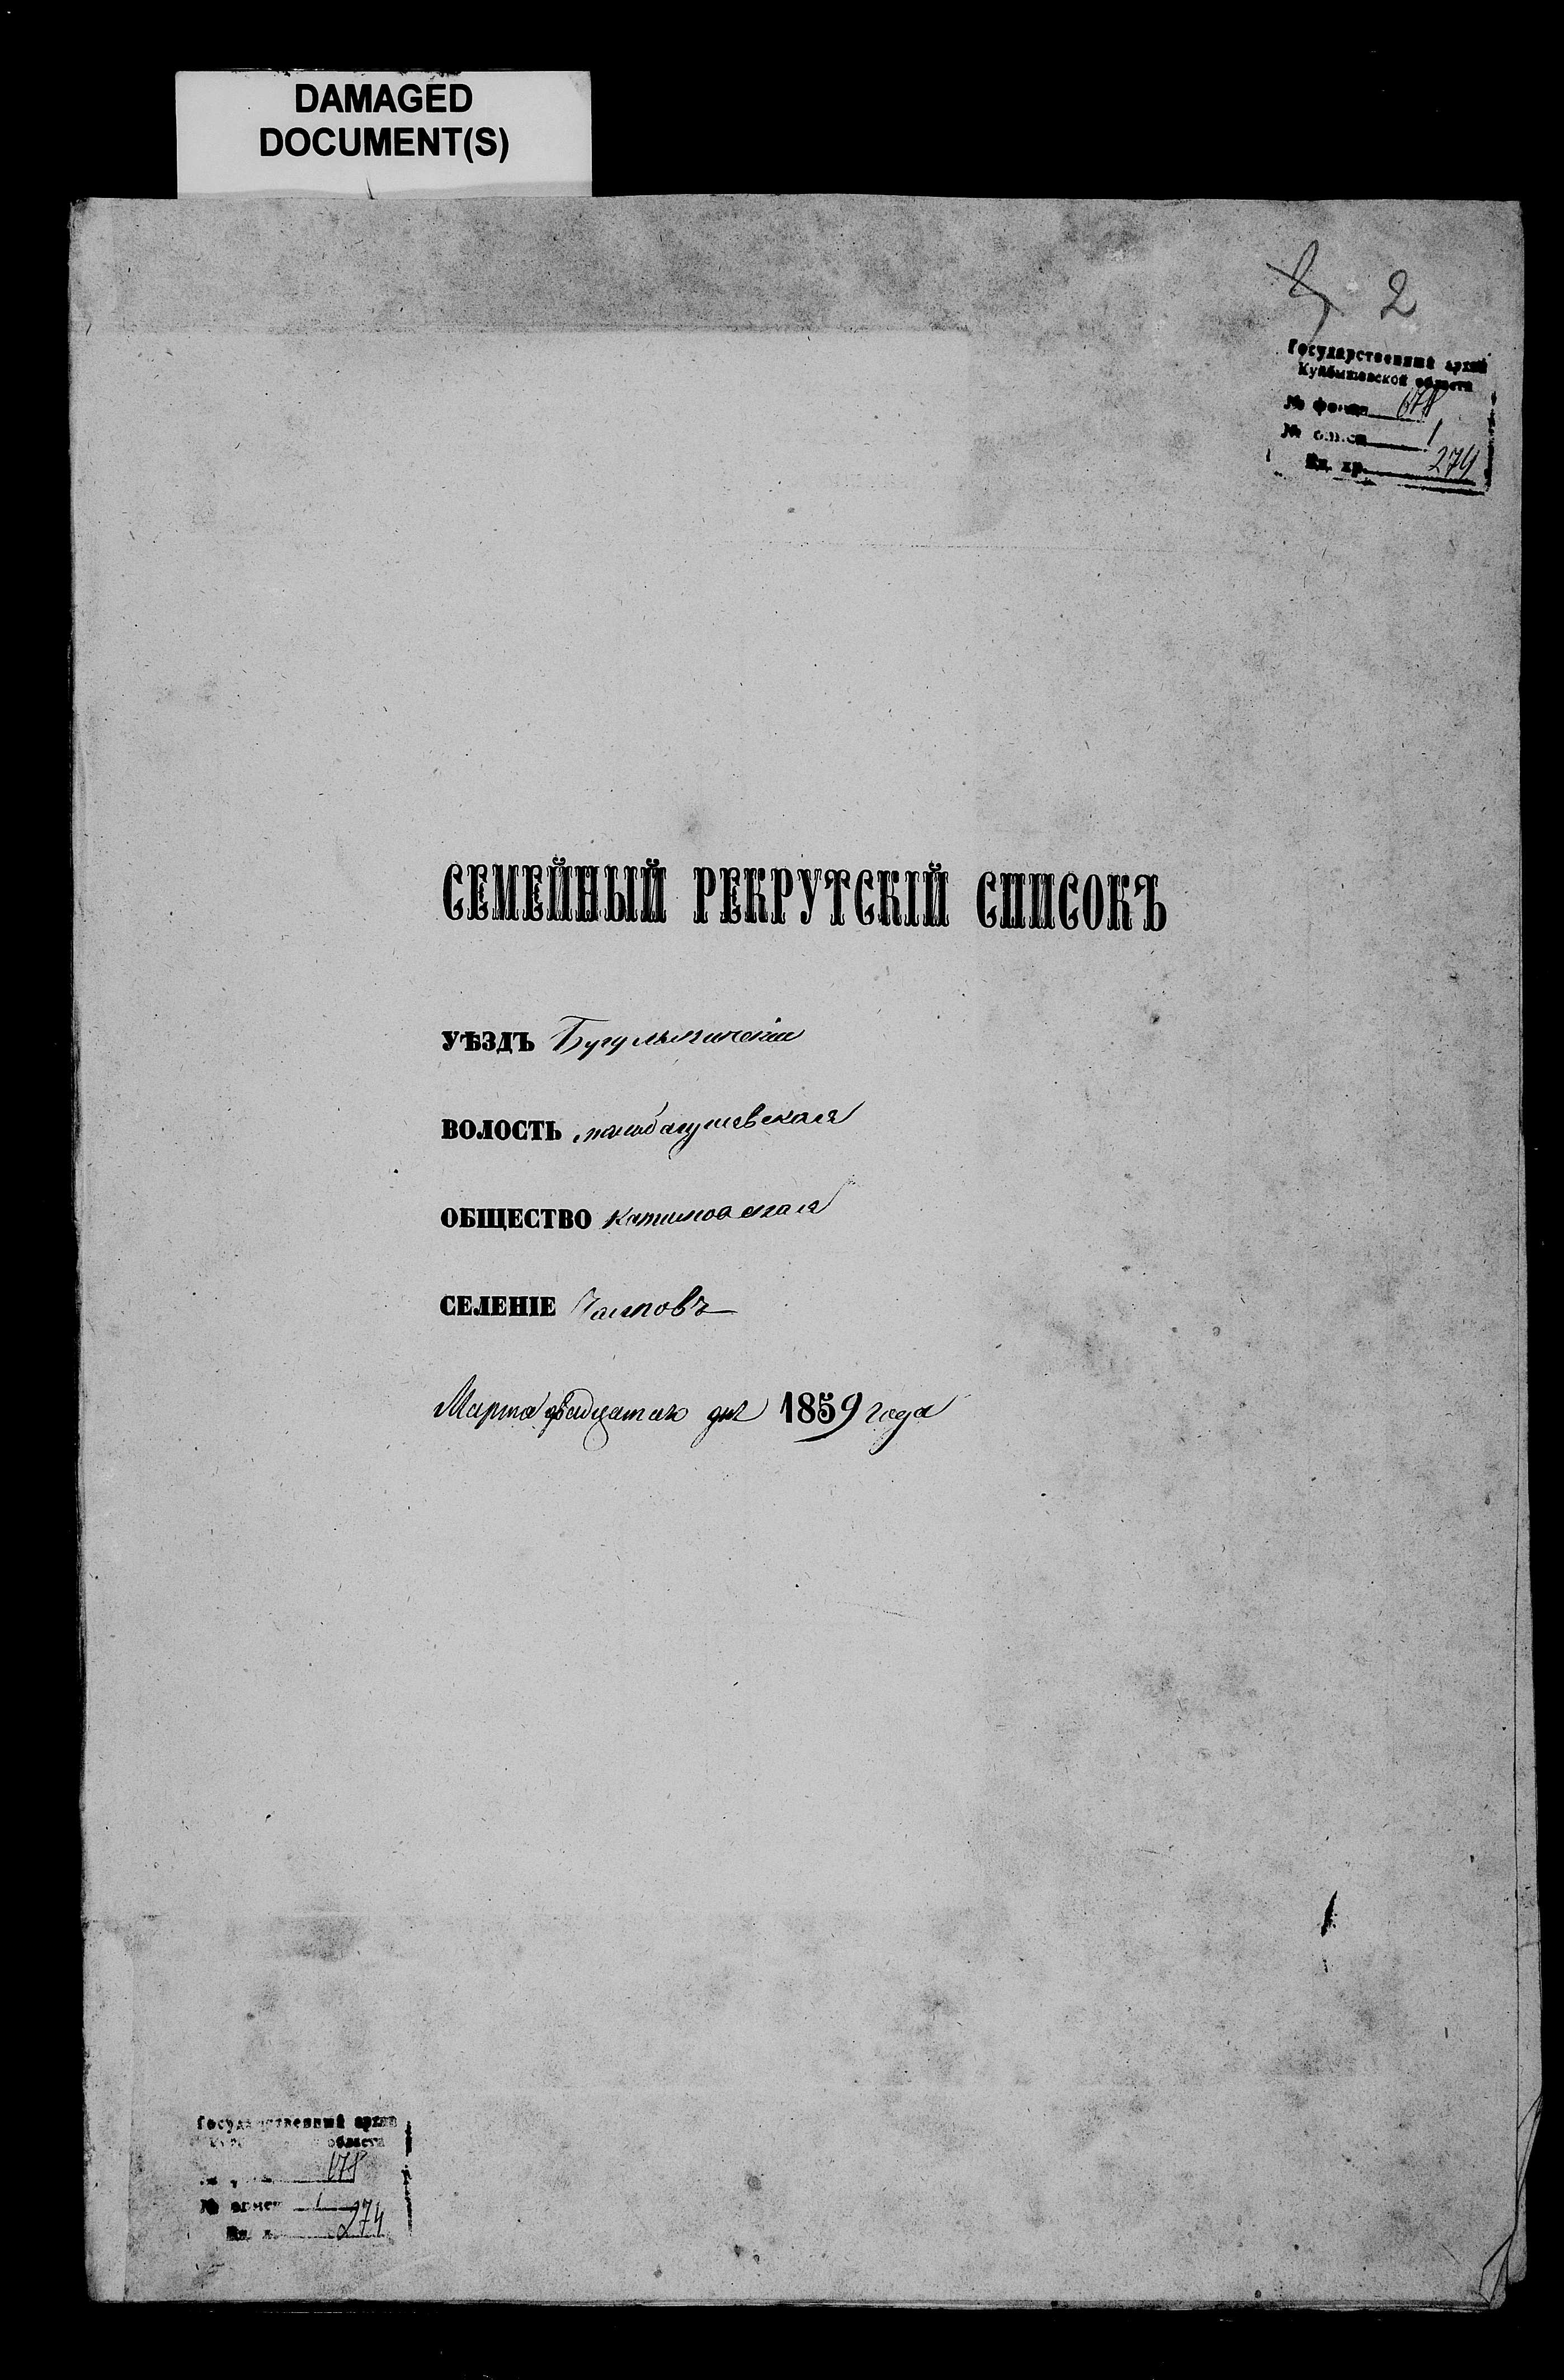 DAMAGED
DOCUMENT(S)
2
Государственный архив
Куйбышевской области
№ фонда 678
№ описи 1
Ед. хр. 274
СЕМЕЙНЫЙ РЕКРУТСКІЙ СПИСОКЪ
УѢЗДЪ Бугульминскій
ВОЛОСТЬ
ОБЩЕСТВО
СЕЛЕНІЕ
Марта двадцатаго дня 1859 года
Государственный архив
области
678
№ описи 1
274